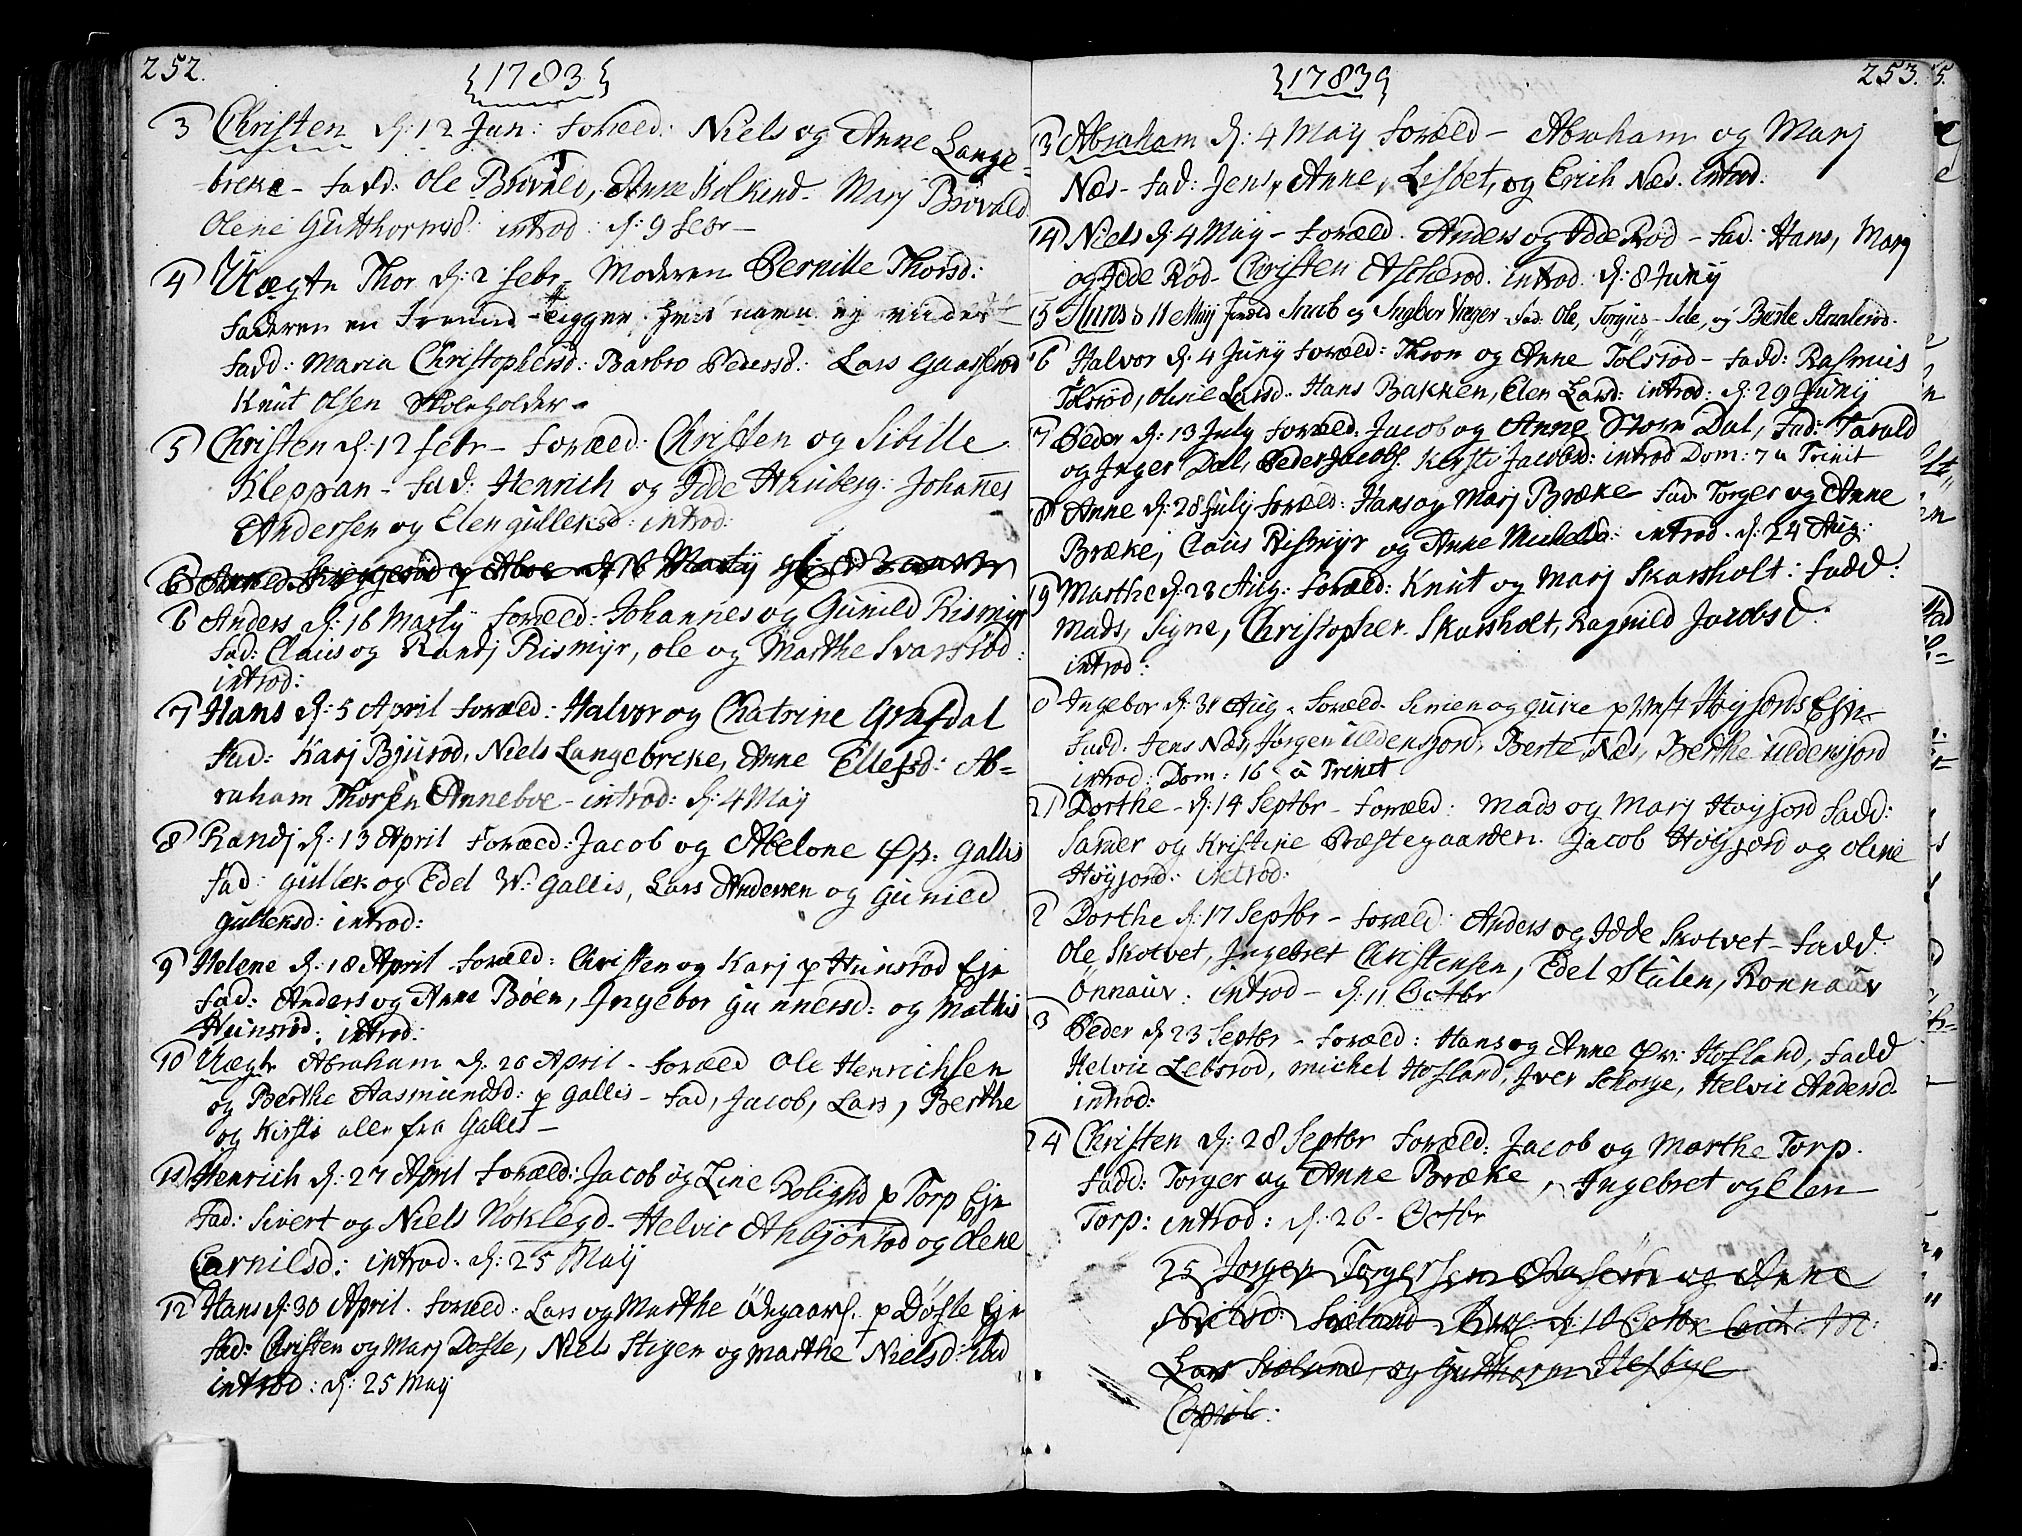 252.
{1783}
3 Christen d: 12 Jan: foræld: Niels og Anne Lange-
breke - fadd: Ole Brøvald, Anne Kolkind - Marj Brøvald
Olene Gutthormsd: introd: d: 9 febr -
4 Uægte Thor d: 2 febr - Moderen Pernille Thorsd:
faderen en Fremd - Tigger, hvis navn ej vides
fadd: Maria Christophersd: Barbro Pedersd: Lars Gaasserød
Knut Olsen Skoleholder -
5 Christen d: 12 febr - foræld: Christen og Sibille
Kleppan - fad: Henrich og Idde Hauberg: Johannes
Andersen og Elen Gulleksd: introd:
6
6 Anders d: 16 Marty foræld: Johannes og Gunild Rismyr
fad: Claus og Randj Rismyr, Ole og Marthe Svarsrød:
introd:
7 Hans d: 5 April foræld: Halvor og Chatrine Grafdal
fad: Karj Bjurød, Niels Langebreke, Anne Ellefsd: Ab-
raham Thorsen Anneboe - introd: d: 4 May
8 Randj d: 13 April foræld: Jacob og Abelone Øp: Gallis
fad: Gullek og Edel W: Gallis, Lars Andersen og Gunild
Gulleksd: introd:
9 Helene d: 18 April foræld: Christen og Karj p Hunsrød Eje
fad: Anders og Anne Bøen, Ingebor Gunnersd: og Mathis
Hunsrød: introd:
10 Uægte Abraham d: 20 April - foræld Ole Henrichsen
og Berthe Aasmundsd: p Gallis - fad, Jacob, Lars, Berthe
og Kirsti alle fra Gallis -
11 Henrich d: 27 April foræld: Jacob og Line Rolighd p Torp Eje
fad: Sivert og Niels Nøklegd - Helvic Anbjønrød og Olene
Carnilsd: introd: d: 25 May
12 Hans d: 30 April. foræld: Lars og Marthe Ødegaard. p Døfle Eje
fad: Christen og Marj Døfle, Niels Stigen og Marthe Nielsd:
introd: d: 25 May
{1783}
253.
13 Abraham d: 4 May foræld - Abraham og Marj
Næs - fad: Jens, Anne, Lisbet, og Erich Næs. introd:
14 Niels d: 4 May - foræld. Anders og Idde Rød - fad: Hans, Marj
og Idde Rød - Christen Ascherød. introd. d: 8 Juny
15 Hans d 11 May foræld Jacob og Ingebor - fad: Ole, Torgus - Ide, og Berte
16 Halvor d: 4 Juny foræld: Thron og Anne Tolsrød - fadd: Rasmus
Tolsrød, Olene Larsd: Hans Bakken, Elen Larsd: introd: d: 29 Juny
17 Peder d: 13 July foræld: Jacob og Anne Dal, fad: Tarald
og Inger Dal, Peder Jacobs. Kersti Jacobsd: introd Dom: 7 a Trinit
18 Anne d: 28 July foræld: Hans og Marj Bræke fad Torger og Anne
Bræke, Claus Rismyr og Anne Michelsd: introd. d: 24 Aug:
19 Marthe d: 23 Aug: foræld: Knut og Marj Skarsholt: fadd:
Mads, Signe, Christopher. Skarsholt, Ragnild Jacobsd:
introd:
0 Ingebor d: 31 Aug. foræld. Simen og Gurie p Høyjords Eje
fadd. Jens Næs, Jørgen Uldensjord, Berte Næs, Berthe Uldensjord
introd: Dom: 16 a Trinit
21 Dorthe - d: 14 Septbr - foræld: Mads og Marj Høyjord fadd:
Sander og Kristine Præstegaarden. Jacob Høyjord og Olene
Høyjord: introd:
2 Dorthe d: 17 Septbr - foræld: Anders og Idde Skotvet - fadd:
Ole Skotvet, Ingebret Christensen, Edel Stulen, Ronnauv
Ønnauv: introd - d: 11 Octbr
3 Peder d 23 Septbr - foræld: Hans og Anne Øv: Hofland, fadd
Helvic Lebsrød, Michel Hofland, Iver Schorge, Helvic Andersd.
introd:
24 Christen d: 28 Septbr foræld: Jacob og Marthe Torp.
fadd: Torger og Anne Bræke, Ingebret og Elen
Torp: introd: d: 26 - Octbr
25 Jørgen Torgersen og Anne
Nielsd: Sæland d: 10 Octbr Caut: M:
Lars Sæland, og Gutthorm Hesbye
Copul: